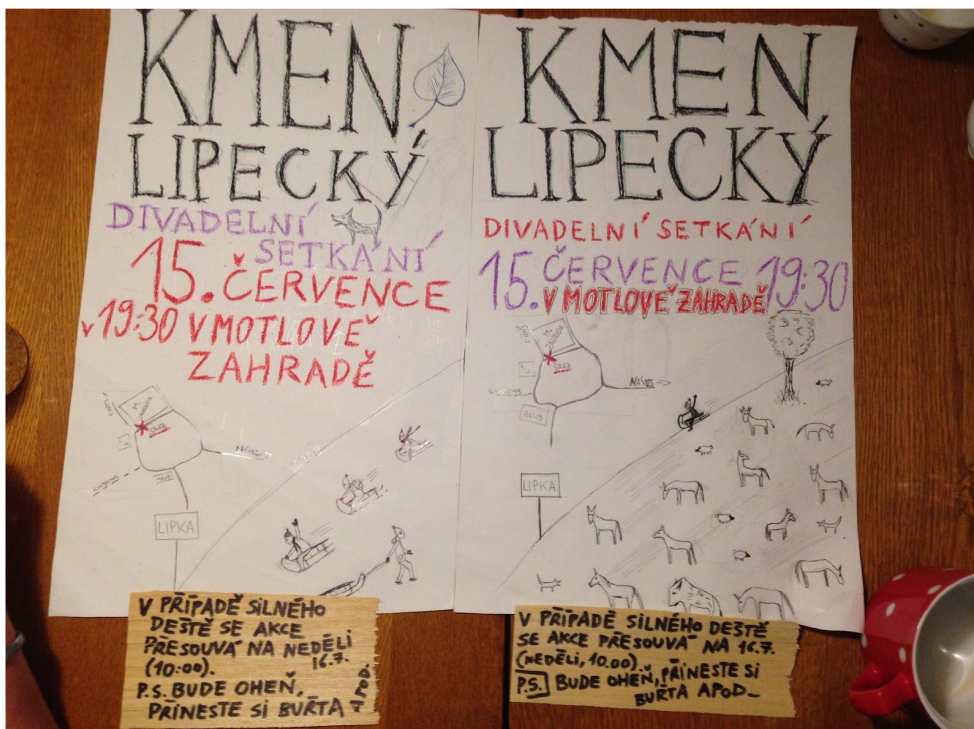 KMEN
LIPECKÝ
DIVADELNÍ
SETKÁNÍ
15. ČERVENCE
v 19:30 V MOTLOVĚ
ZAHRADĚ
LIPKA
V PŘÍPADĚ SILNÉHO
DEŠTĚ SE AKCE
PŘESOUVÁ NA NEDĚLI
16.7.
(10:00).
P.S. BUDE OHEŇ,
PŘINESTE SI BUŘTA APOD.
KMEN
LIPECKÝ
DIVADELNÍ SETKÁNÍ
15. ČERVENCE 19:30
V MOTLOVĚ ZAHRADĚ
NÁVES
LIPKA
V PŘÍPADĚ SILNÉHO DEŠTĚ
SE AKCE PŘESOUVÁ NA 16.7.
(NEDĚLI, 10.00).
P.S. BUDE OHEŇ, PŘINESTE SI
BUŘTA APOD...